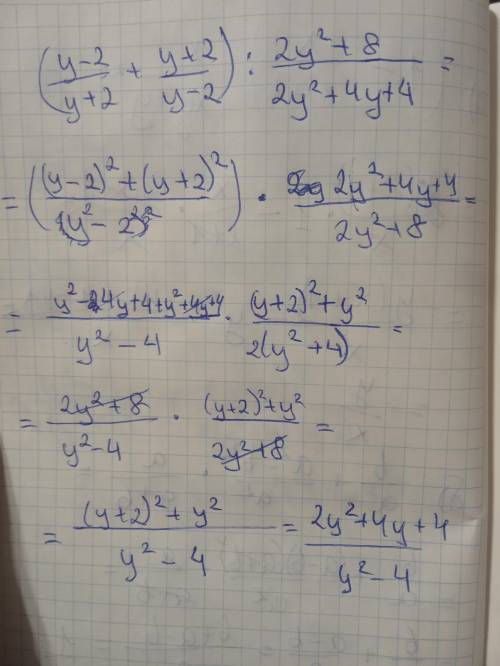 ((y-2)/(y+2) + (y+2)/(y-2)) : (2y²+8)/(2y²+4y+4) =
= (((y-2)²+(y+2)²)/(y²-2²)) · (2y²+4y+4)/(2y²+8) =
= (y²-4y+4+y²+4y+4)/(y²-4) · ((y+2)²+y²)/(2(y²+4)) =
= (2y²+8)/(y²-4) · ((y+2)²+y²)/(2y²+8) =
= ((y+2)²+y²)/(y²-4) = (2y²+4y+4)/(y²-4)